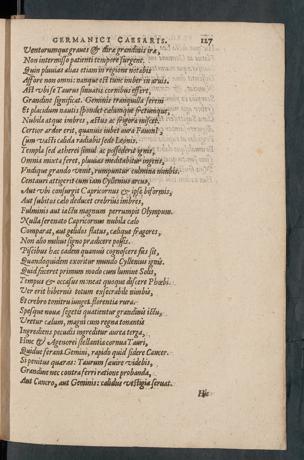 GERMANICI CAESARIS. 127
Ventorumque graues & dira grandinis ira,
Non intermisso patienti tempore surgent.
Quin pluuias alias etiam in regione notabis
Affore non omni: nanque est tunc imber in aruis.
Ast vbi se Taurus sinuatis cornibus effert,
Grandine significat. Geminis tranquilla sereni
Et placidum nautis spondet calumque fretumque,
Nubila atque imbres, actus &
Certior ardor erit, quamuis iubet aura Fauoni
Cum vasti calida radiabit sede Leonis.
Templa sed ætherei simul ac possederit ignis,
Omnia mixta feret, pluuias meditabitur ingens,
Vndique grando venit, rumpuntur culmina nimbis.
Centauri attigerit cum iam Cyllenius arcus,
Aut vbi consurgit Capricornus & ipse biformis,
Aut subitos cælo deducet crebrius imbres,
Fulminis aut iactu magnum perrumpit Olympum.
Nulla serenato Capricornus nubila cælo
Comparat, aut gelidos flatus, cælique fragores,
Non alio melius signo prædicere possis.
Piscibus hæc eadem quamuis cognoscere sis sit,
Quandoquidem exoritur mundo Cyllenius ignis.
Quid faceret primum modo cum lumine Solis,
Tempus & occasus nec at quoque discere Phœbi.
Ver erit hibernis totum execrabile nimbis,
Et crebro tonitru iunget florentia rura.
Spesque noua segetis quatientur grandinis ictu,
Vretur calum, magni cum regna tonantis
Ingrediens pecudis ingreditur aurea terga,
Hinc & Agenorei stellantia cornua Tauri,
Quidue ferant Gemini, rapido quid sidere Cancer.
Si penitus quæras: Taurum sæuire videbis,
Grandine nec contra ferri ratione probanda,
Aut Cancro, aut Geminis: calidus vestigia seruat.
Hic